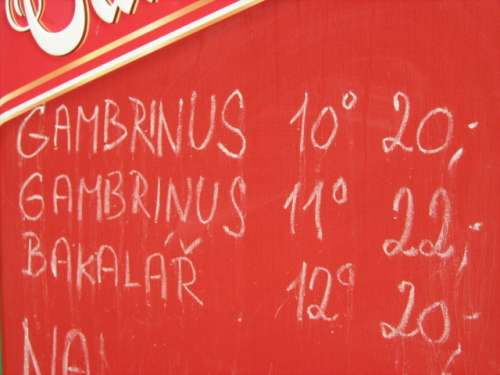 GAMBRINUS 10° 20,-
GAMBRINUS 11° 22,-
BAKALÁŘ 12° 20,-